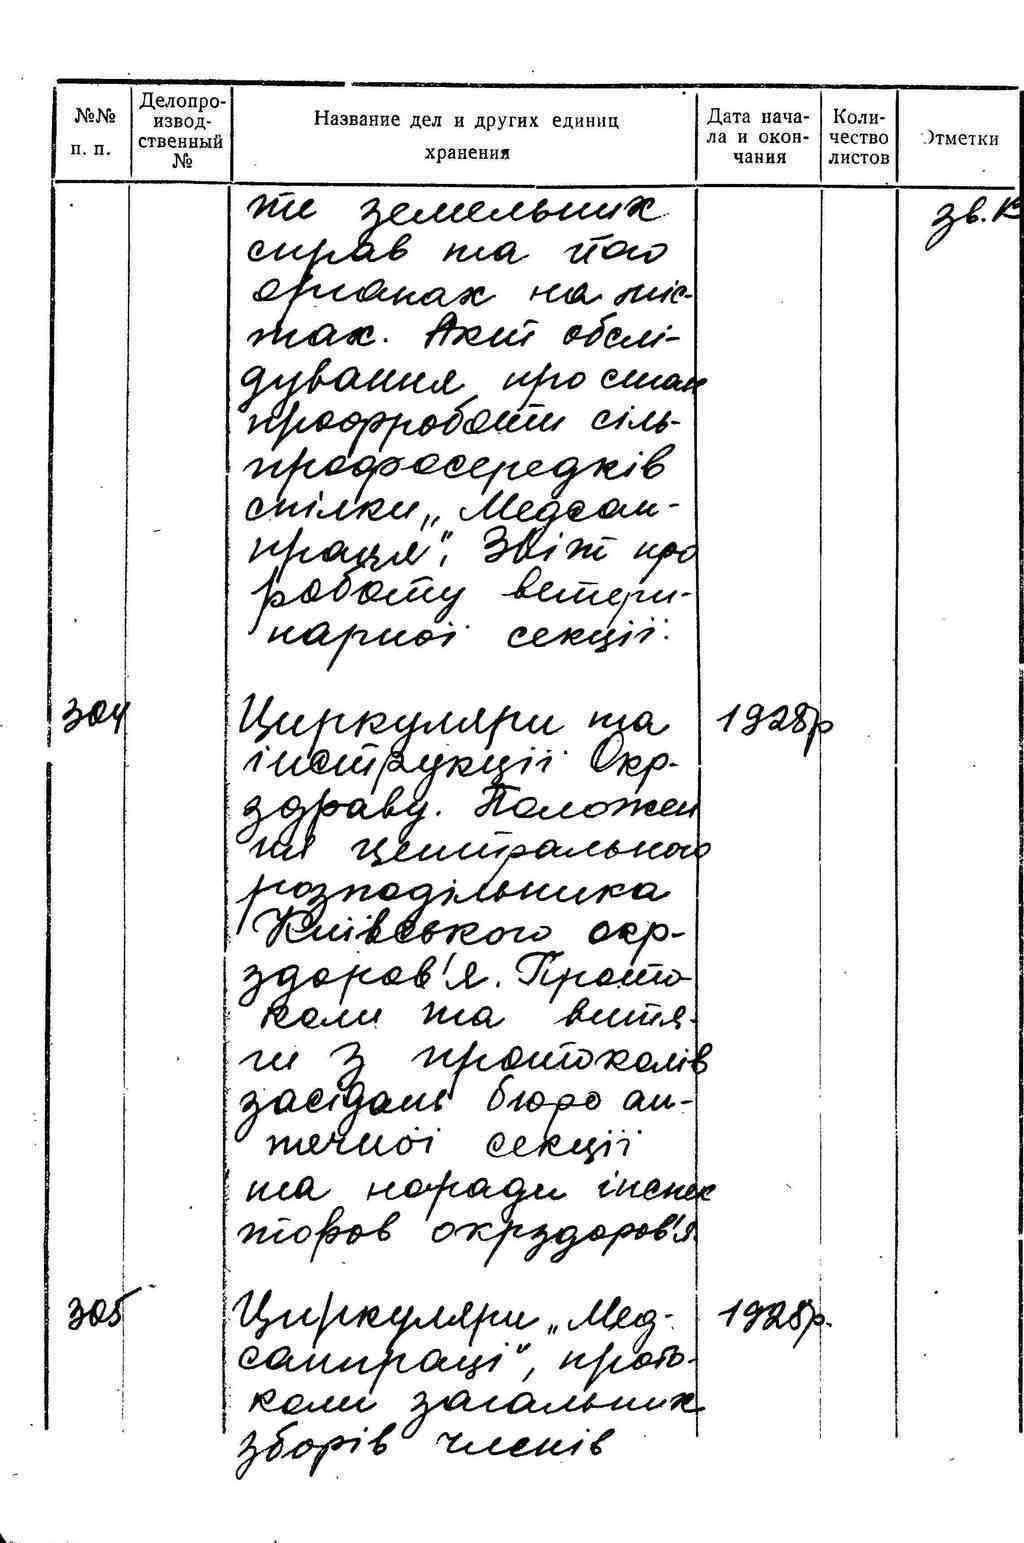 №№ п. п.
Делопро-
извод-
ственный
№
Название дел и других единиц
хранения
Дата нача-
ла и окон-
чания
Коли-
чество
листов
Отметки
ти земельних
справ та його
органах на міс-
тах. Акти обслі-
дування про стан
профроботи сіль-
профосередків
спілки „Медсан-
праця”. Звіт про
роботу ветери-
нарної секції.
зв. К
304
Циркуляри та
інструкції Окр-
здраву. Положен
ня центрального
розподільника
Київського окр-
здоров'я. Прото
коли та витя-
ги з протоколів
засідань бюро ап-
течної секції
та наради інспек
торов окрздоров'я
1928р
305
Циркуляри „Мед-
санпраці”, прото-
коли загальних
зборів членів
1928р.